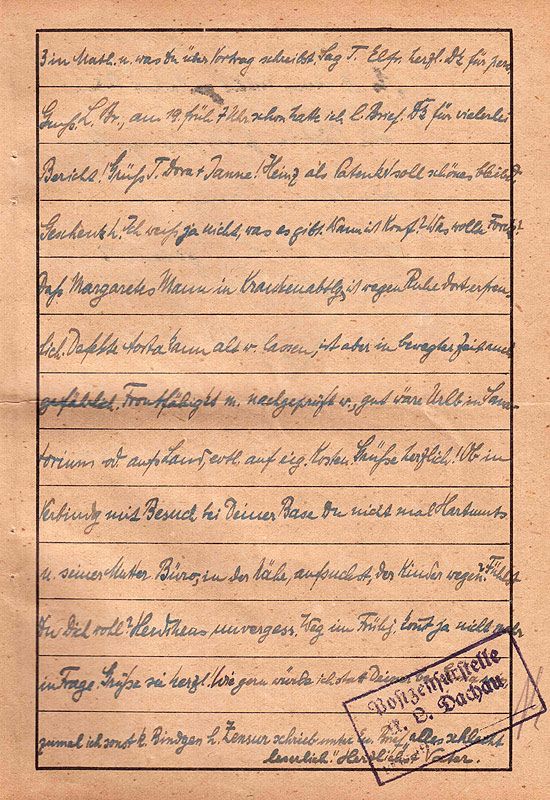 3 in Math. u. was Du über Vortrag schreibst. Sag T. Elfr. herzl. Dk für pers.
Gruß. L. Br., am 19. früh 7 Uhr schon hatte ich l. Brief. Dk für vielerlei
Bericht! Grüß T. Dora + Hanne! Heinz als Patenk. soll schönes bleibd.
Geschenk h. Ich weiß ja nicht, was es gibt. Wann ist Konf.? Was wollte
Daß Margaretes Mann in Krankenabtlg. ist wegen Ruhe dort erfreu-
lich. Defekte Aorta kann alt w. lassen, ist aber in bewegter Zeit auch
gefährlich. Frontfähigkt m. nachgeprüft w., gut wäre Urlb. in Sana-
torium od. aufs Land, evtl. auf eig. Kosten. Grüße herzlich! Ob in
Verbindg mit Besuch bei Deiner Base Du nicht mal Hartmuts
u. seiner Mutter Büro, in der Nähe, aufsuchst, der Kinder wegen? Fühlst
Du Dich wohl? unvergess. Weg im Frühj. kommt ja nicht mehr
in Frage. Grüße sie herzl.! Wie gern würde ich statt Deiner
zumal ich sonst k. Bindgen h. Zensur schrieb unter m. Brief „alles schlecht
leserlich." Herzlichst Vater.
Postzensurstelle
K. L. Dachau